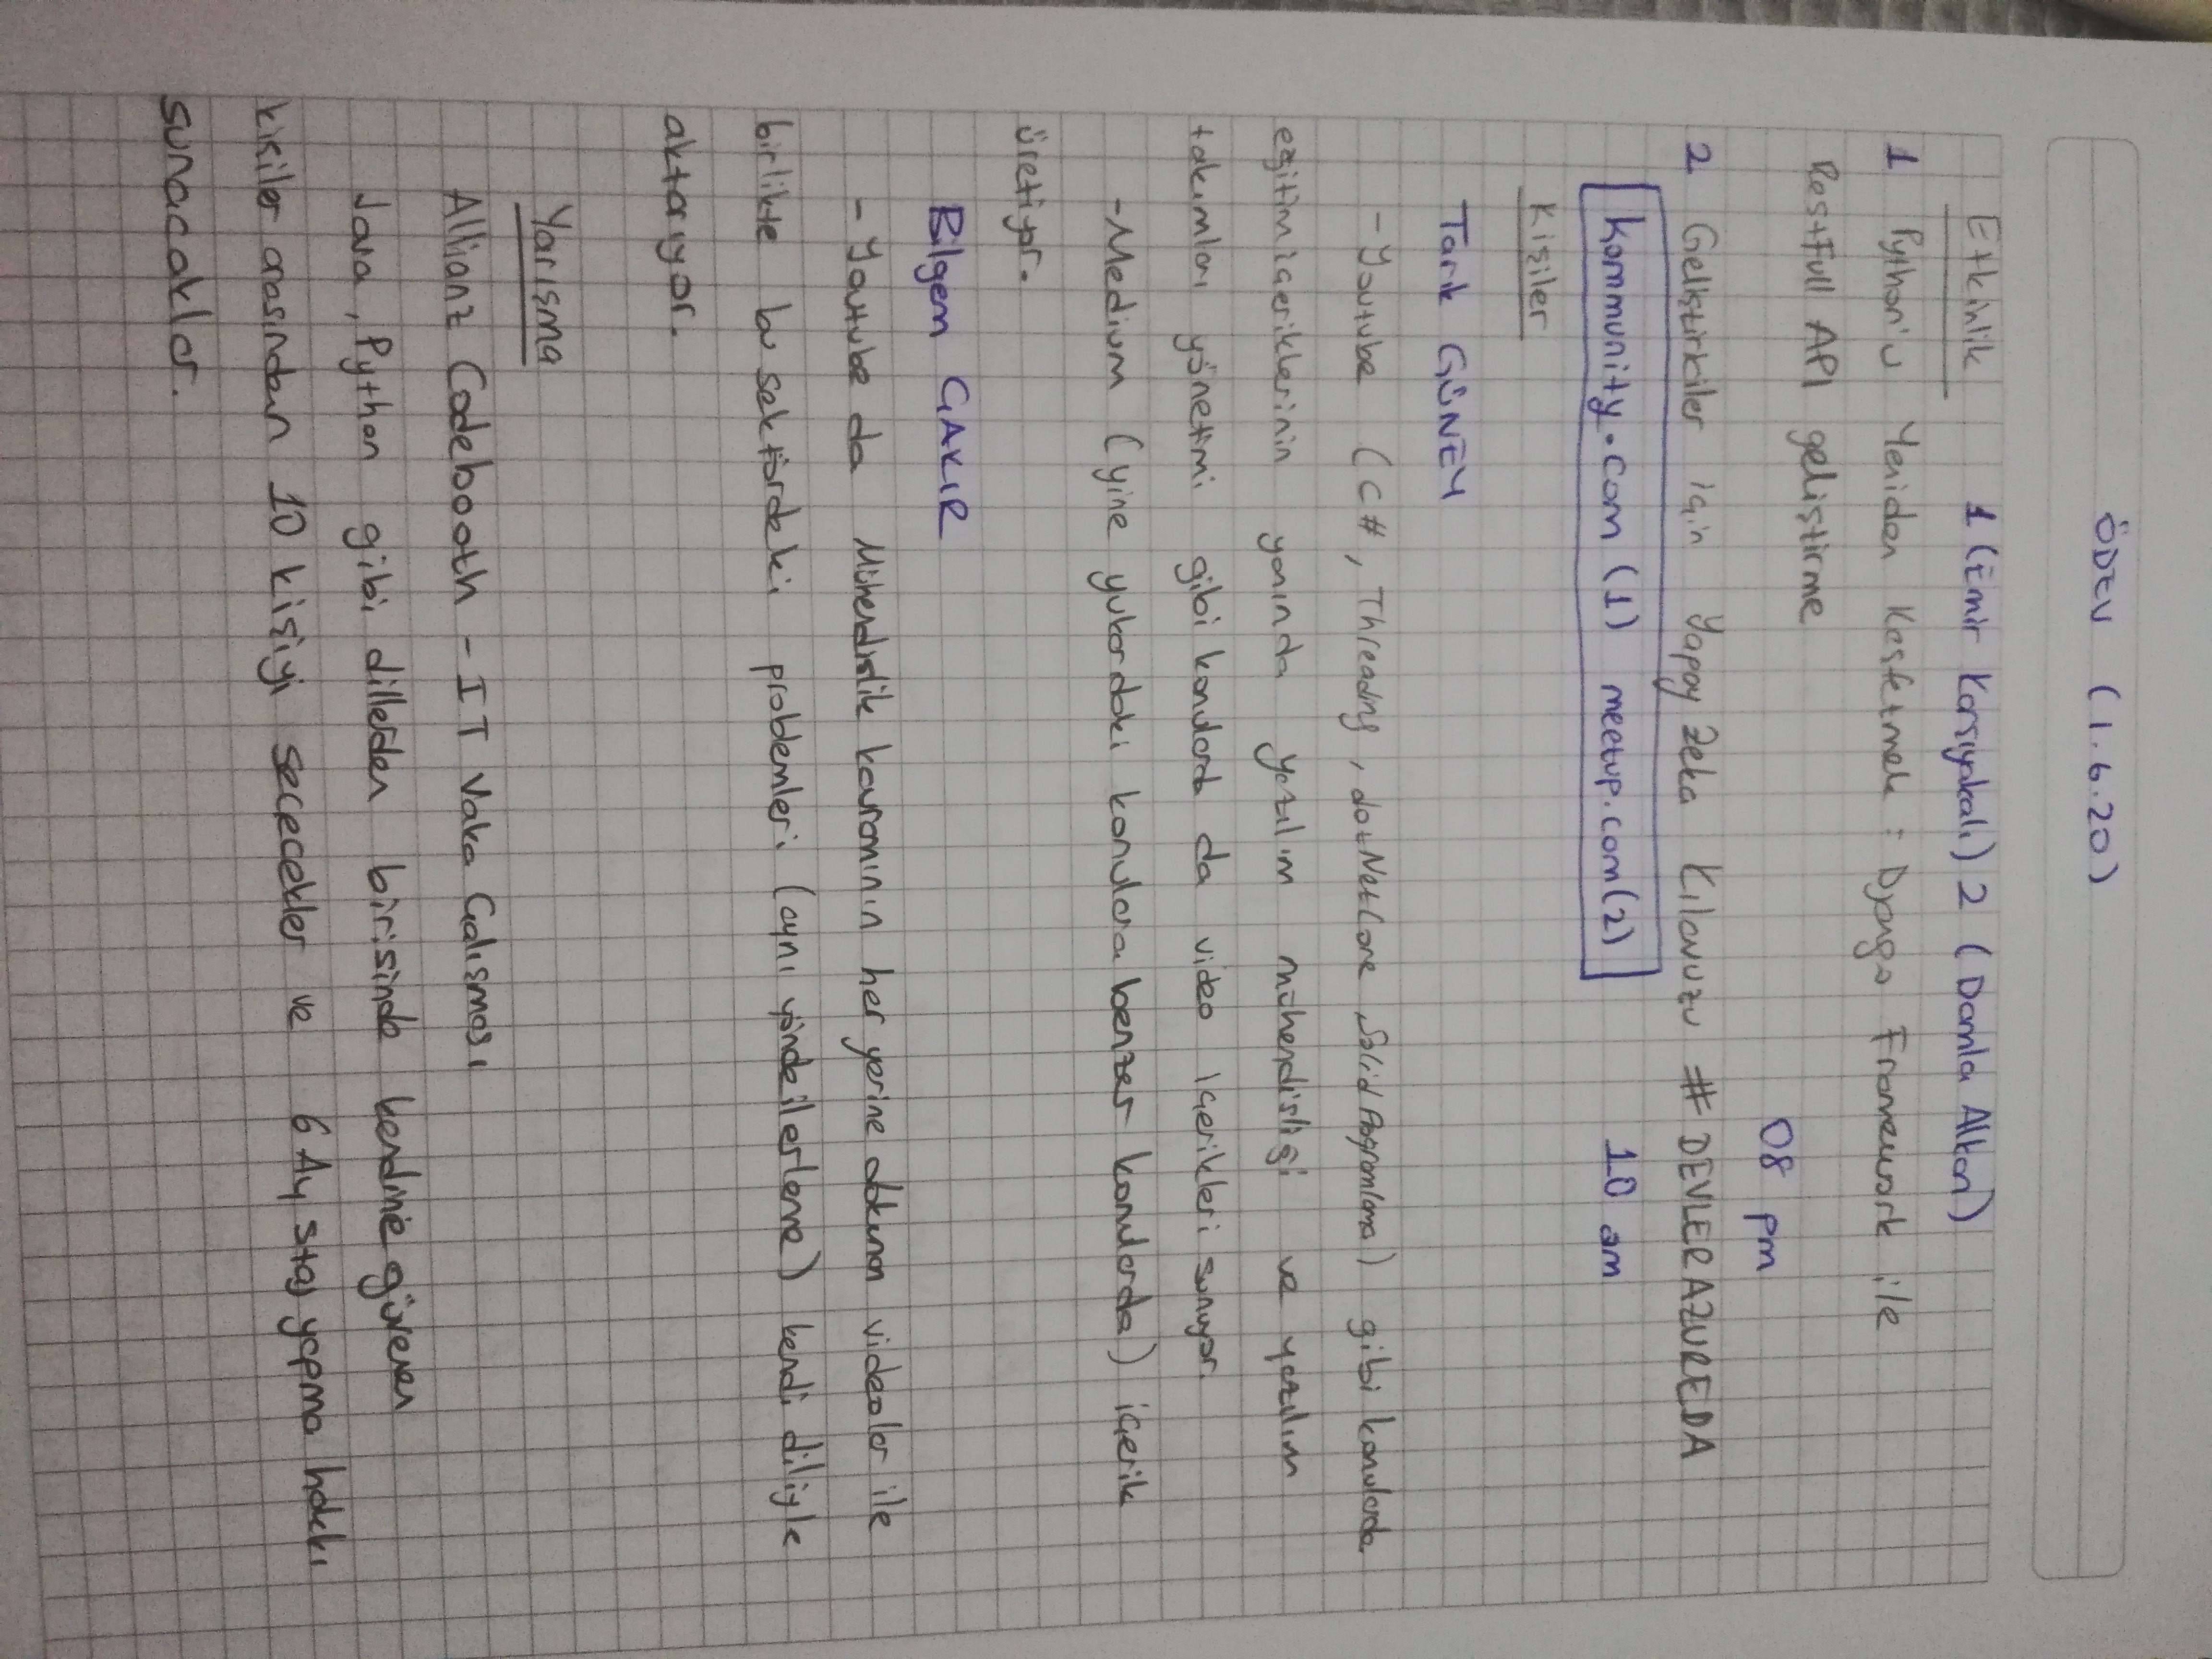 ÖDEV (1.6.20)
Etkinlik 1 (Emir Karşıyakalı) 2 (Damla Altan)
1 Python'u Yeniden Keşfetmek : Django Framework ile
RestFull API geliştirme
08 pm
2 Geliştirkiler için Yapay Zeka Kılavuzu # DEVLERAZUREDA
kommunity.com (1) meetup.com (2) 10 am
Kişiler
Tarık GÜNEY
- Youtube (C#, Threading, dotNetCore Solid Programlama) gibi konularda
eğitim içeriklerinin yanında yazılım mühendisliği ve yazılım
takımları yönetimi gibi konularda da video içerikleri sunuyor.
- Medium (yine yukardaki konulara benzer konularda) içerik
üretiyor.
Bilgem ÇAKIR
- Youtube da Mühendislik kavramının her yerine dokunan videolar ile
birlikte bu sektördeki problemleri (aynı yönde ilerleme) kendi diliyle
aktarıyor.
Yarışma
Allianz Codebooth - IT Vaka Çalışması
Java, Python gibi dillerden birisinde kendine güvenen
kişiler arasından 10 kişiyi seçecekler ve 6 Ay staj yapma hakkı
sunacaklar.